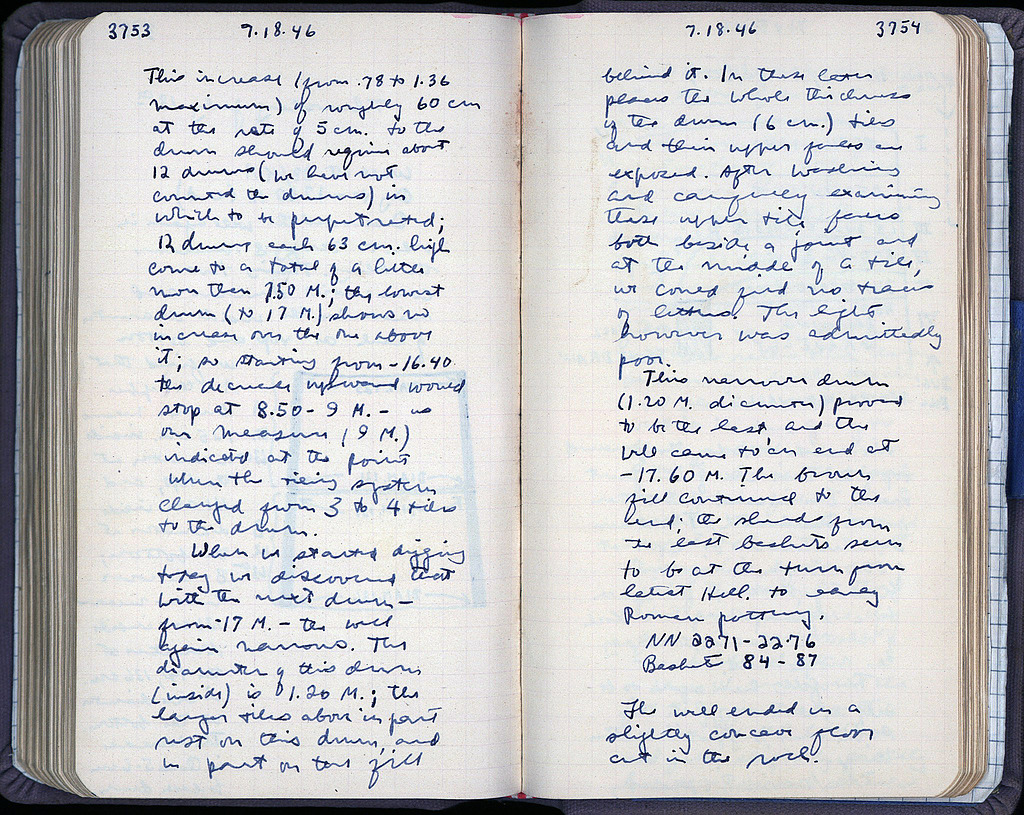 3753 7.18.46
This increase (from .78 to 1.36
maximum) of roughly 60 cm
at the rate of 5 cm. to the
drum should require about
12 drums (we have not
counted the drums) in
which to be perpetrated;
12 drums each 63 cm. high
come to a total of a little
more than 7.50 M.; the lowest
drum (to 17 M.) shows no
increase over the one above
it; so starting from -16.40
the decrease upward would
stop at 8.50 - 9 M. - as
our measure (9 M.)
indicated at the point
when the system
changed from 3 to 4 tiles
to the drum.
When we started digging
today we discovered that
with the next drum -
from -17 M. - the well
again narrows. The
diameter of this drum
(inside) is 1.20 M.; the
larger tiles above in part
rest on this drum, and
in part on the fill
7.18.46 3754
behind it. In these latter
places the whole thickness
of the drum (6 cm.) tiles
and their upper faces are
exposed. After washing
and carefully examining
these upper tile faces
both beside a joint and
at the middle of a tile,
we could find no traces
of letters. The light
however was admittedly
poor.
This narrower drum
(1.20 M. diameter) proved
to be the last, and the
well came to an end at
-17.60 M. The brown
fill continued to the
end; the sherds from
the last baskets seem
to be at the turn from
latest Hell. to early
Roman pottery.
NN 2271-2276
Baskets 84-87
The well ended in a
slightly concave floor
cut in the rock.